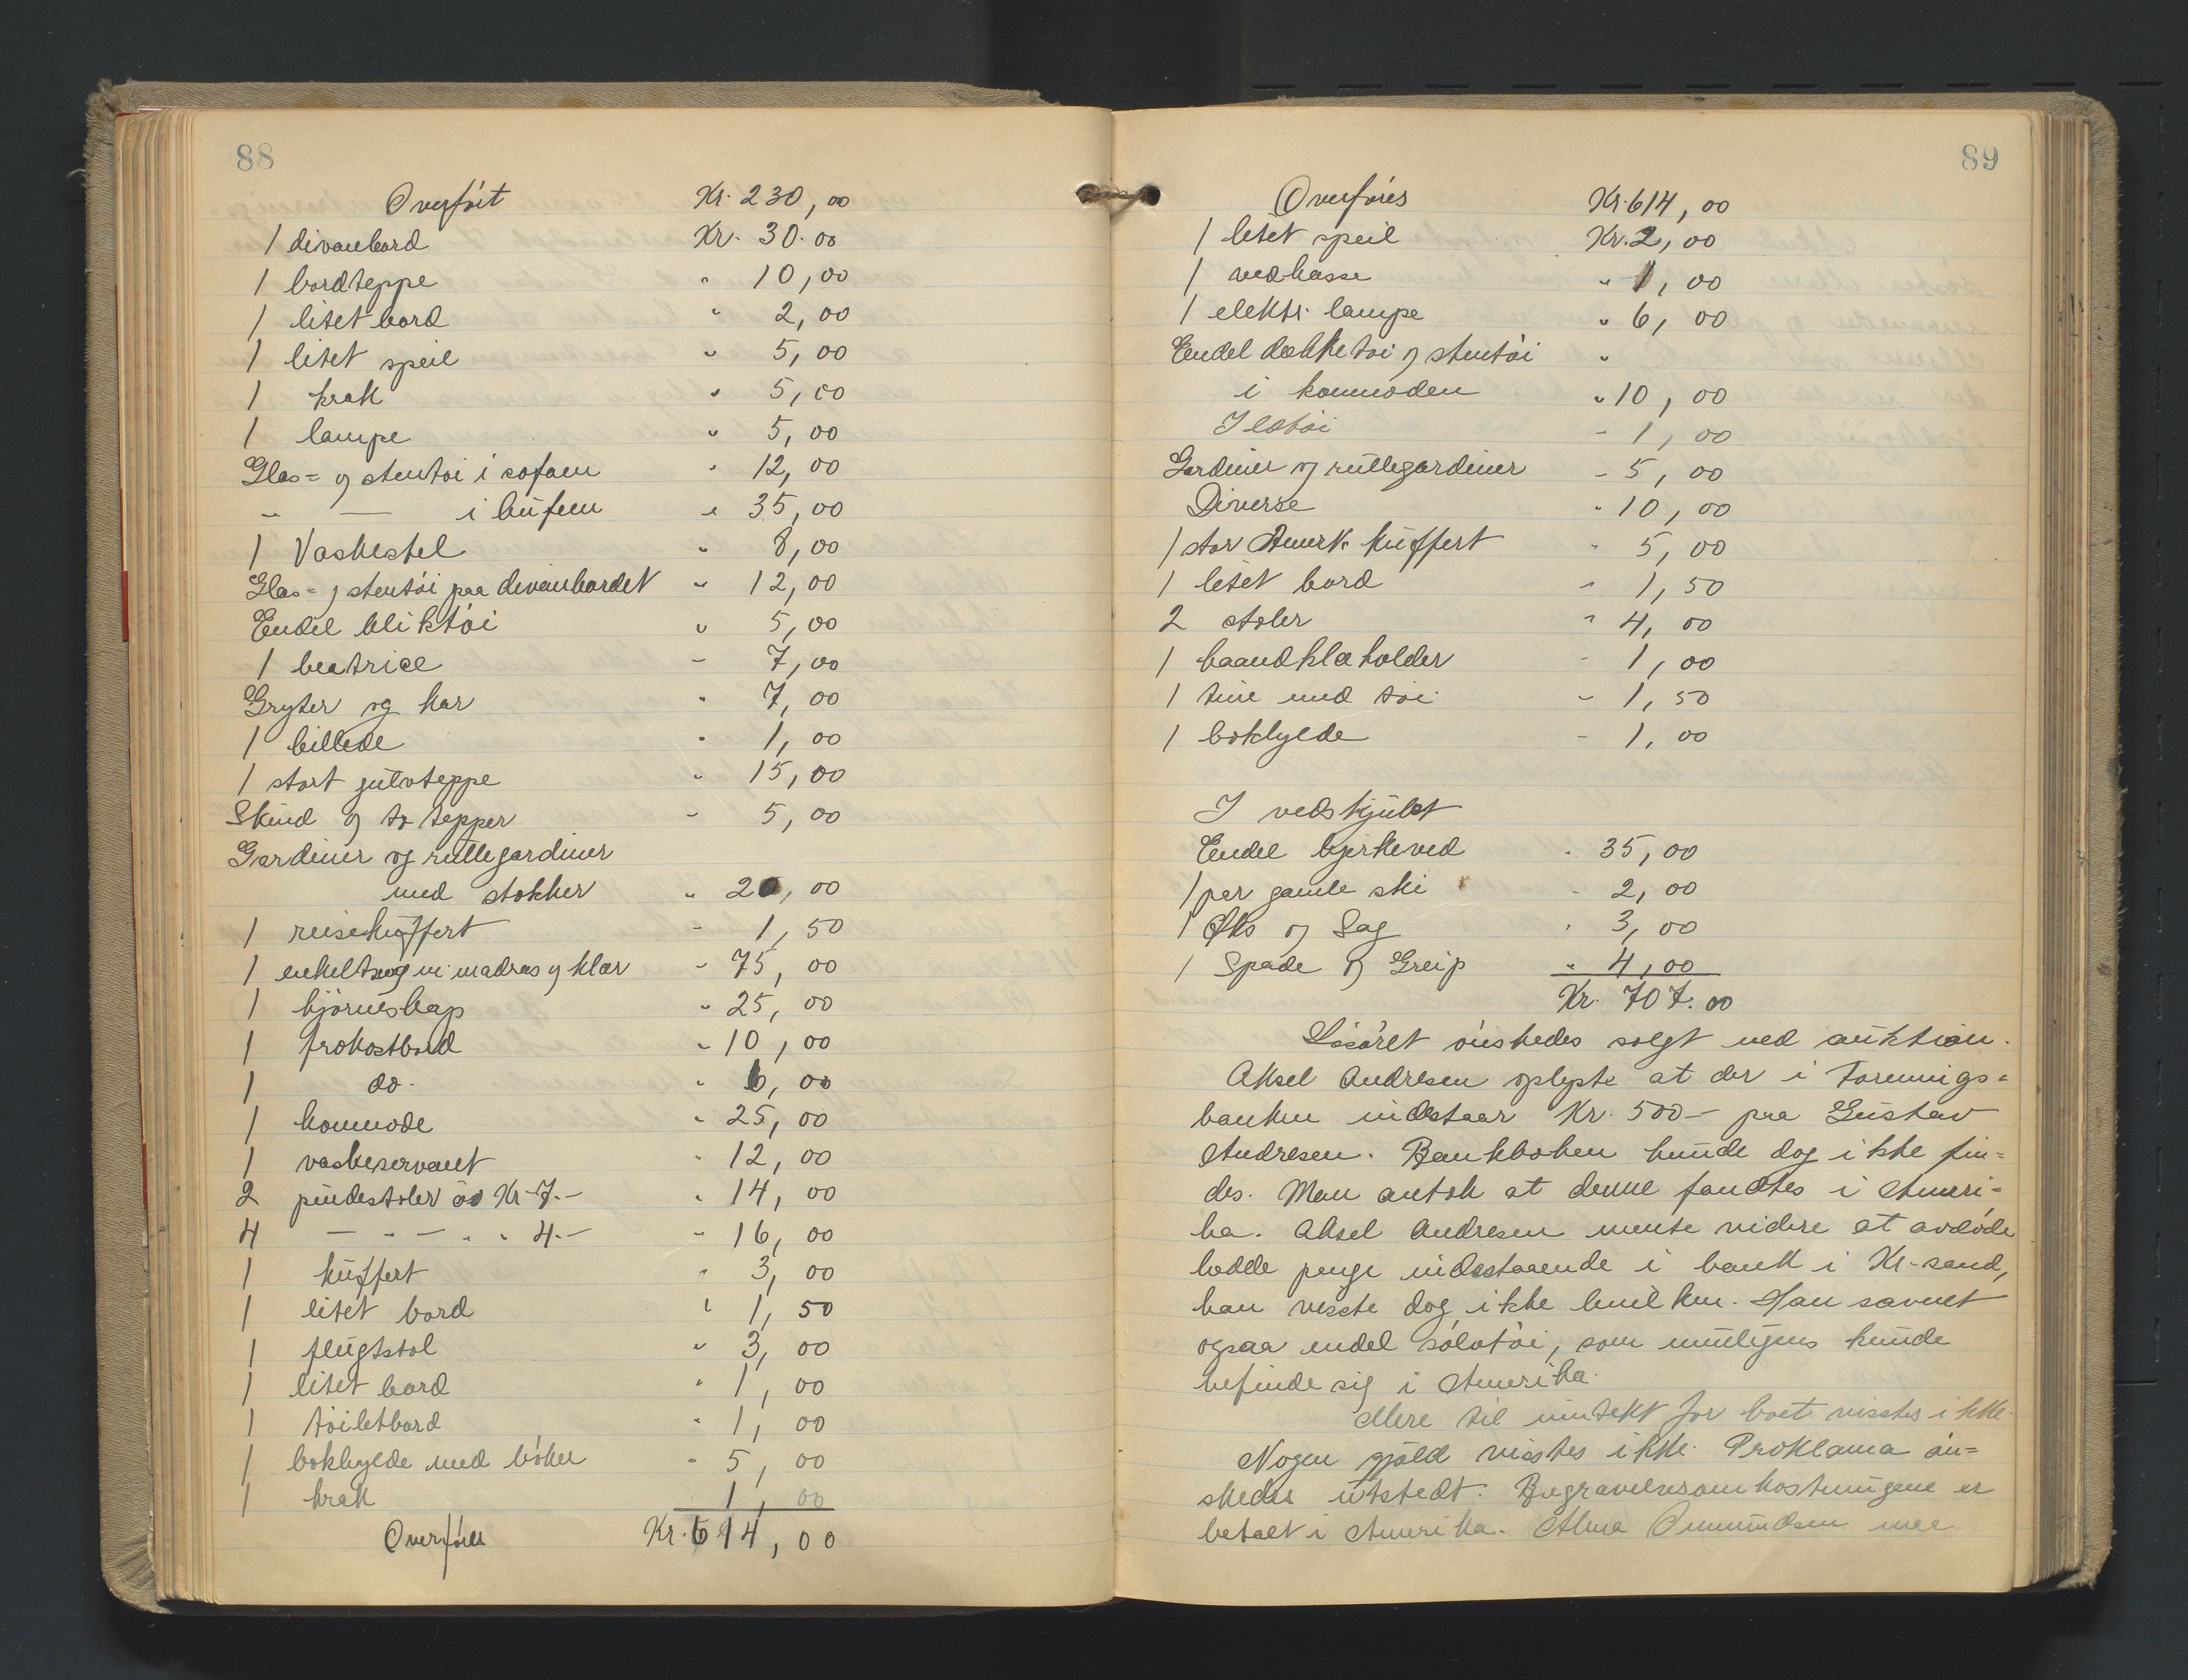 88
Overført Kr. 230,00
1 divanbord Kr. 30.00
1 bordteppe " 10,00
1 litet bord " 2,00
1 litet speil " 5,00
1 krak " 5,00
1 lampe " 5,00
Glas= og stentøi i sofaen " 12,00
" — i buffeen " 35,00
1 Vaskestel " 8,00
Glas= og stentøi paa divanbordet " 12,00
Endel bliktøi " 5,00
1 beatrice - 7,00
Gryter og kar " 7,00
1 billede " 1,00
1 stort gulvteppe " 15,00
Skind og to tepper - 5,00
Gardiner og rullegardiner
med stokker " 20,00
1 reisekuffert - 1,50
1 enkeltseng m. madras og klær - 75,00
1 hjørneskap " 25,00
1 frokostbord " 10,00
1 do. " 6,00
1 kommode " 25,00
1 vaskeservant " 12,00
2 pindestoler à Kr. 7.- " 14,00
4 — " — " " 4.- " 16,00
1 kuffert " 3,00
1 litet bord " 1,50
1 flugtstol " 3,00
1 litet bord " 1,00
1 toiletbord " 1,00
1 bokhylde med bøker " 5,00
1 krak 1,00
Overføres Kr. 614,00
89
Overføres Kr. 614,00
1 litet speil Kr. 2,00
1 vedkasse " 1,00
1 elektr. lampe " 6,00
Endel dekketøi og stentøi "
i kommoden " 10,00
Iletøi - 1,00
Gardiner og rullegardiner - 5,00
Diverse " 10,00
1 stor Amerk. kuffert " 5,00
1 litet bord " 1,50
2 stoler " 4,00
1 haandklæholder - 1,00
1 tine med tøi - 1,50
1 bokhylde - 1,00
I vedskjulet
Endel bjerkeved " 35,00
1 par gamle ski - 2,00
1 Øks og Sag " 3,00
1 Spade og Greip " 4,00
Kr. 707.00
Løsøret ønskedes solgt ved auktion.
Aksel Andresen oplyste at der i Forenings=
banken indestaar Kr. 500— paa Gustav
Andresen. Bankboken kunde dog ikke fin=
des. Man antok at denne fandtes i Ameri=
ka. Aksel Andresen mente videre at avdøde
hadde penge indestaaende i bank i Kr-sand,
han visste dog ikke hvilken. Han savnet
ogsaa endel sølvtøi, som muligens kunde
befinde sig i Amerika.
Mere til inntekt for boet visstes ikke.
Nogen gjæld visstes ikke. Proklama øn=
skedes utstedt. Begravelsesomkostningene er
betalt i Amerika. Alma Ommundsen